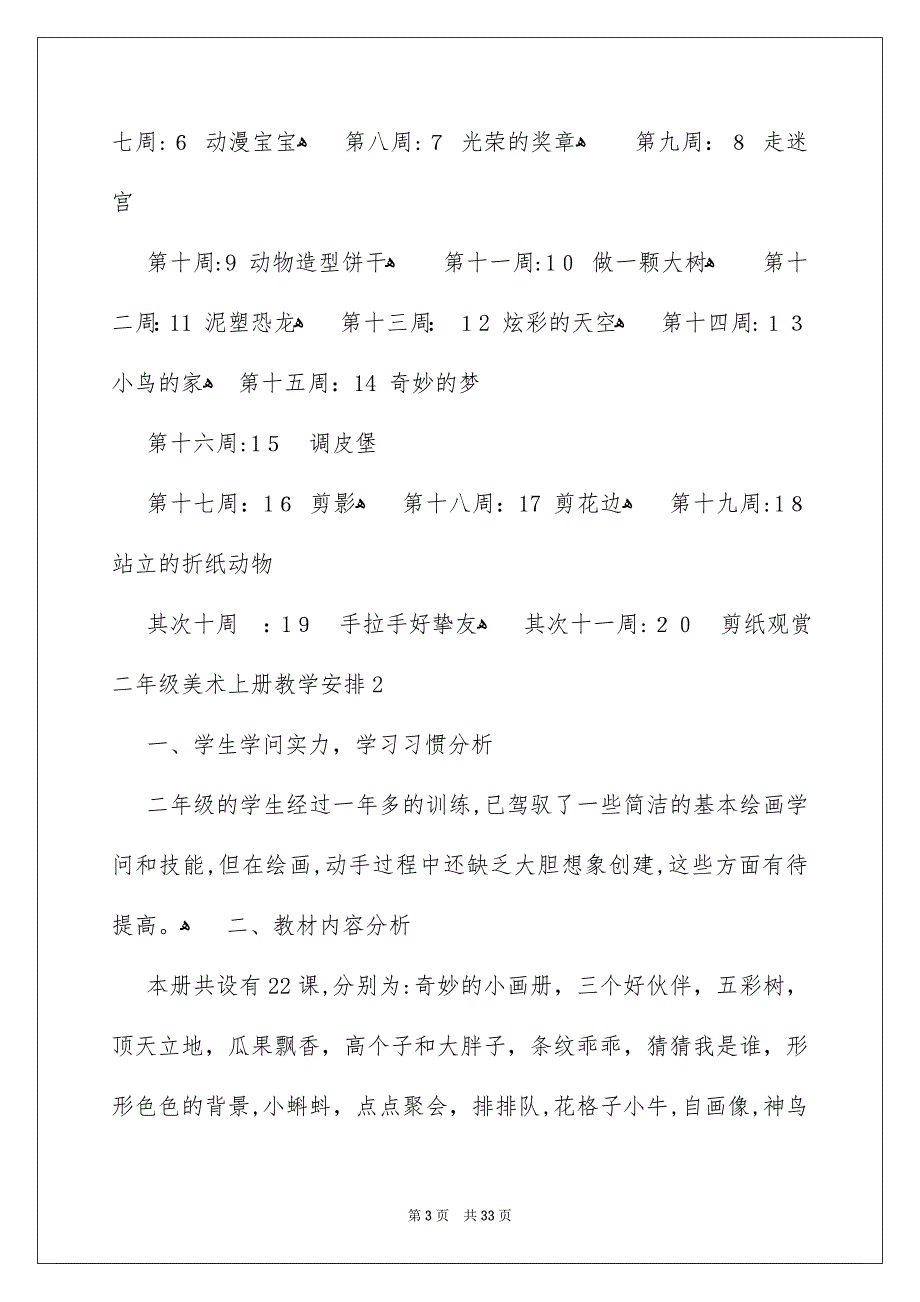 七周: 6 动漫宝宝ﻫ 第八周: 7 光荣的奖章ﻫ 第九周: 8 走迷
宫
第十周:9 动物造型饼干ﻫ 第十一周:10 做一颗大树ﻫ 第十
二周:11 泥塑恐龙ﻫ 第十三周: 12 炫彩的天空ﻫ 第十四周:13
小鸟的家ﻫ 第十五周: 14 奇妙的梦
第十六周:15 调皮堡
第十七周: 16 剪影ﻫ 第十八周: 17 剪花边ﻫ 第十九周:18
站立的折纸动物
其次十周 :19 手拉手好挚友ﻫ 其次十一周: 20 剪纸观赏
二年级美术上册教学安排2
一、学生学问实力，学习习惯分析
二年级的学生经过一年多的训练,已驾驭了一些简洁的基本绘画学
问和技能,但在绘画,动手过程中还缺乏大胆想象创建,这些方面有待
提高。ﻫ 二、教材内容分析
本册共设有22课,分别为:奇妙的小画册，三个好伙伴，五彩树，
顶天立地，瓜果飘香，高个子和大胖子，条纹乖乖，猜猜我是谁，形
形色色的背景,小蝌蚪，点点聚会，排排队,花格子小牛,自画像,神鸟
第3页 共33页